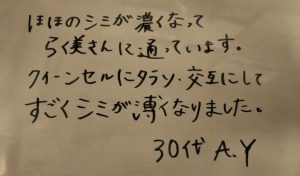 ほほのシミが濃くなって
らく美さんに通っています。
クイーンセルにタラソ・交互にして
すごくシミが薄くなりました。
30代 A.Y